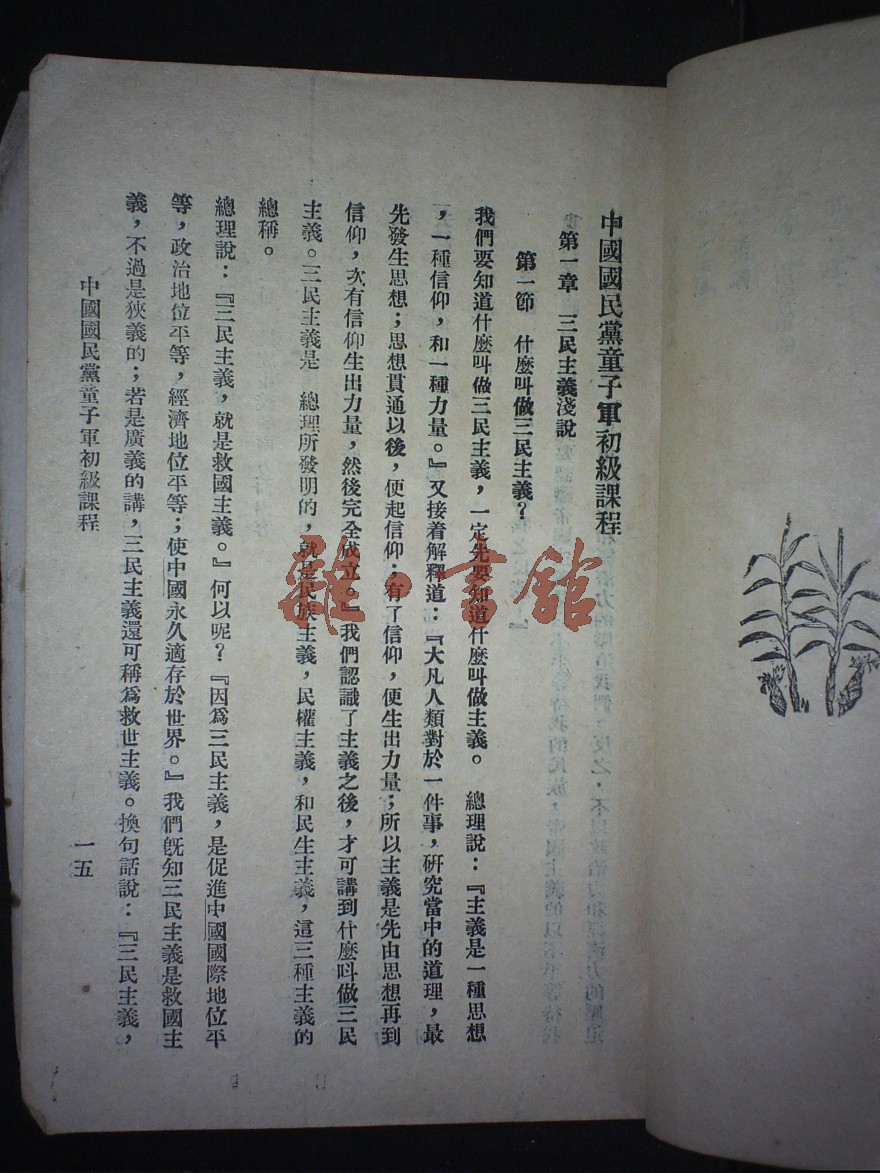 中國國民黨童子軍初級課程
第一章　三民主義淺說
第一節　什麼叫做三民主義？
我們要知道什麼叫做三民主義，一定先要知道什麼叫做主義。　總理說：『主義是一種思想
，一種信仰，和一種力量。』又接着解釋道：『大凡人類對於一件事，硏究當中的道理，最
先發生思想；思想貫通以後，便起信仰；有了信仰，便生出力量；所以主義是先由思想再到
信仰，次有信仰生出力量，然後完全成立。』我們認識了主義之後，才可講到什麼叫做三民
主義。三民主義是　總理所發明的，就是民族主義，民權主義，和民生主義，這三種主義的
總稱。
總理說：『三民主義，就是救國主義。』何以呢？『因爲三民主義，是促進中國國際地位平
等，政治地位平等，經濟地位平等；使中國永久適存於世界。』我們旣知三民主義是救國主
義，不過是狹義的；若是廣義的講，三民主義還可稱爲救世主義。換句話說：『三民主義，
中國國民黨童子軍初級課程
一五
雜·書館